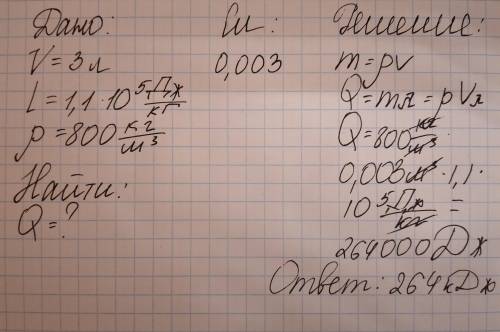 Дано:
V = 3 л
L = 1,1 · 10⁵ Дж/кг
ρ = 800 кг/м³
Найти:
Q = ?
Си:
0,003
Решение:
m = ρV
Q = mλ = ρVλ
Q = 800 кг/м³ ·
0,003 м³ · 1,1 ·
10⁵ Дж/кг =
264000 Дж
Ответ: 264 кДж